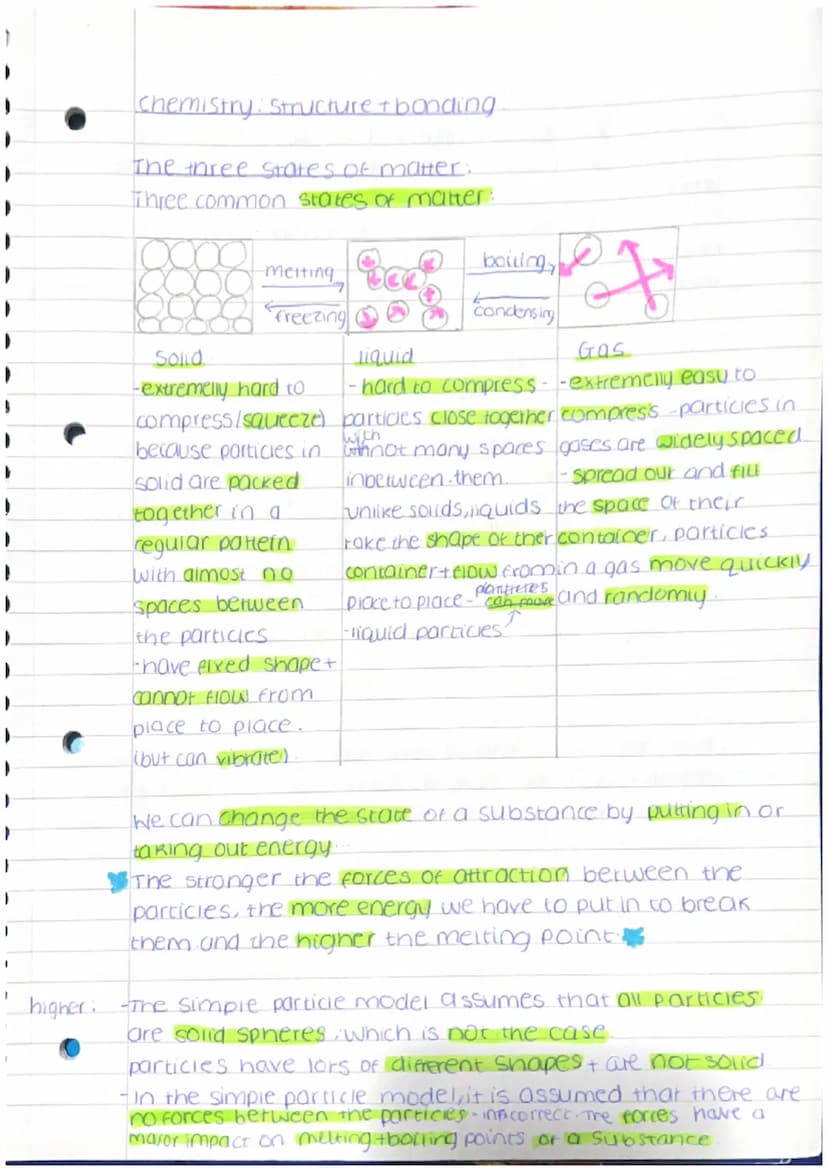 Chemistry: Structure + bonding
The three states of matter:
Three common states of matter:
melting
freezing
boiling
condensing
Solid
-extremelly hard to
compress/squeeze)
because particles in
solid are packed
together in a
regular pattern
with almost no
spaces between
the particles
-have fixed shape +
cannot flow from
place to place.
(but can vibrate)
liquid
- hard to compress -
particles close together
with
not many spaces
inbetween them.
unlike solids, liquids
take the shape of their
container + flow from
place to place -
can move
-liquid particles
Gas
-extremelly easy to
compress - particles in
gases are widely spaced
- spread out and fill
the space of their
container, particles
in a gas move quickly
and randomly.
We can change the state of a substance by putting in or
taking out energy.
The stronger the forces of attraction between the
particles, the more energy we have to put in to break
them and the higher the melting point.
higher: -The simple particle model assumes that all particles
are solid spheres, which is not the case.
particles have lots of different shapes + are not solid
-In the simple particle model, it is assumed that there are
no forces between the particles - incorrect. The forces have a
major impact on melting + boiling points of a substance